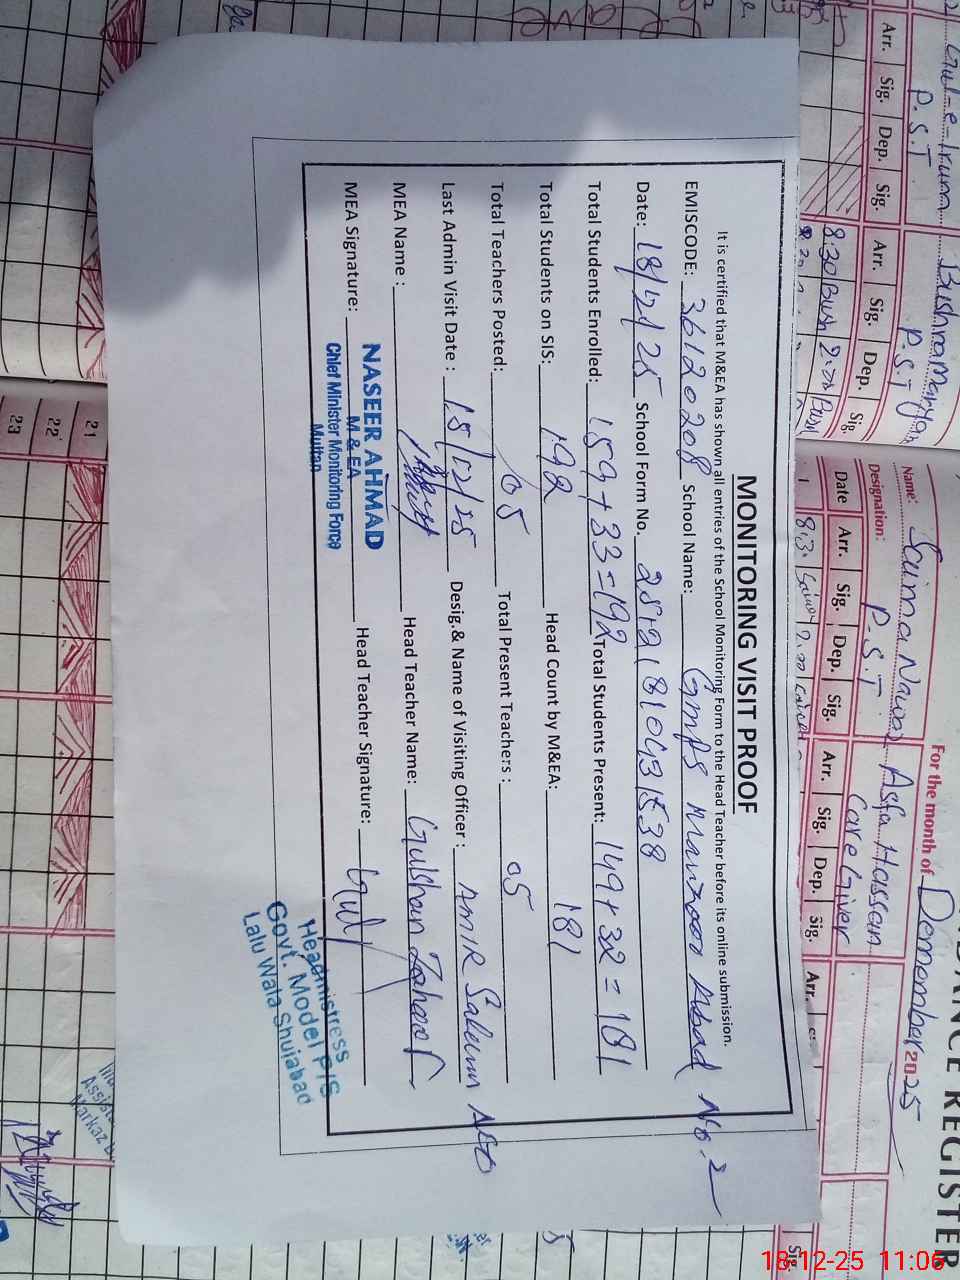 MONITORING VISIT PROOF
It is certified that M&EA has shown all entries of the School Monitoring Form to the Head Teacher before its online submission.
EMISCODE: 36120208 School Name: GMPS Manzoor Abad No.2
Date: 18/12/25 School Form No. 2521810431538
Total Students Enrolled: 159+33=192 Total Students Present: 149+32=181
Total Students on SIS: 192 Head Count by M&EA: 181
Total Teachers Posted: 05 Total Present Teachers: 05
Last Admin Visit Date: 15/12/25 Desig.& Name of Visiting Officer: Amir Saleem AEO
MEA Name: Head Teacher Name: Gulshan
MEA Signature: Head Teacher Signature: Gul
NASEER AHMAD
M & EA
Chief Minister Monitoring Force
Multan
Headmistress
Govt. Model P/S
Lalu Wala Shujabad
DANCE REGISTER
For the month of December 2025
Name: Saima Nawaz Asfa Hassan
Designation: P.S.T Care Giver
Date Arr. Sig. Dep. Sig. Arr. Sig. Dep. Sig. Arr.
Gul-e-Irum Bushra Maryam
P.S.T P.S.T
Arr. Sig. Dep. Sig. Arr. Sig. Dep. Sig.
8:30 Bush
21
22
23
18-12-25 11:06